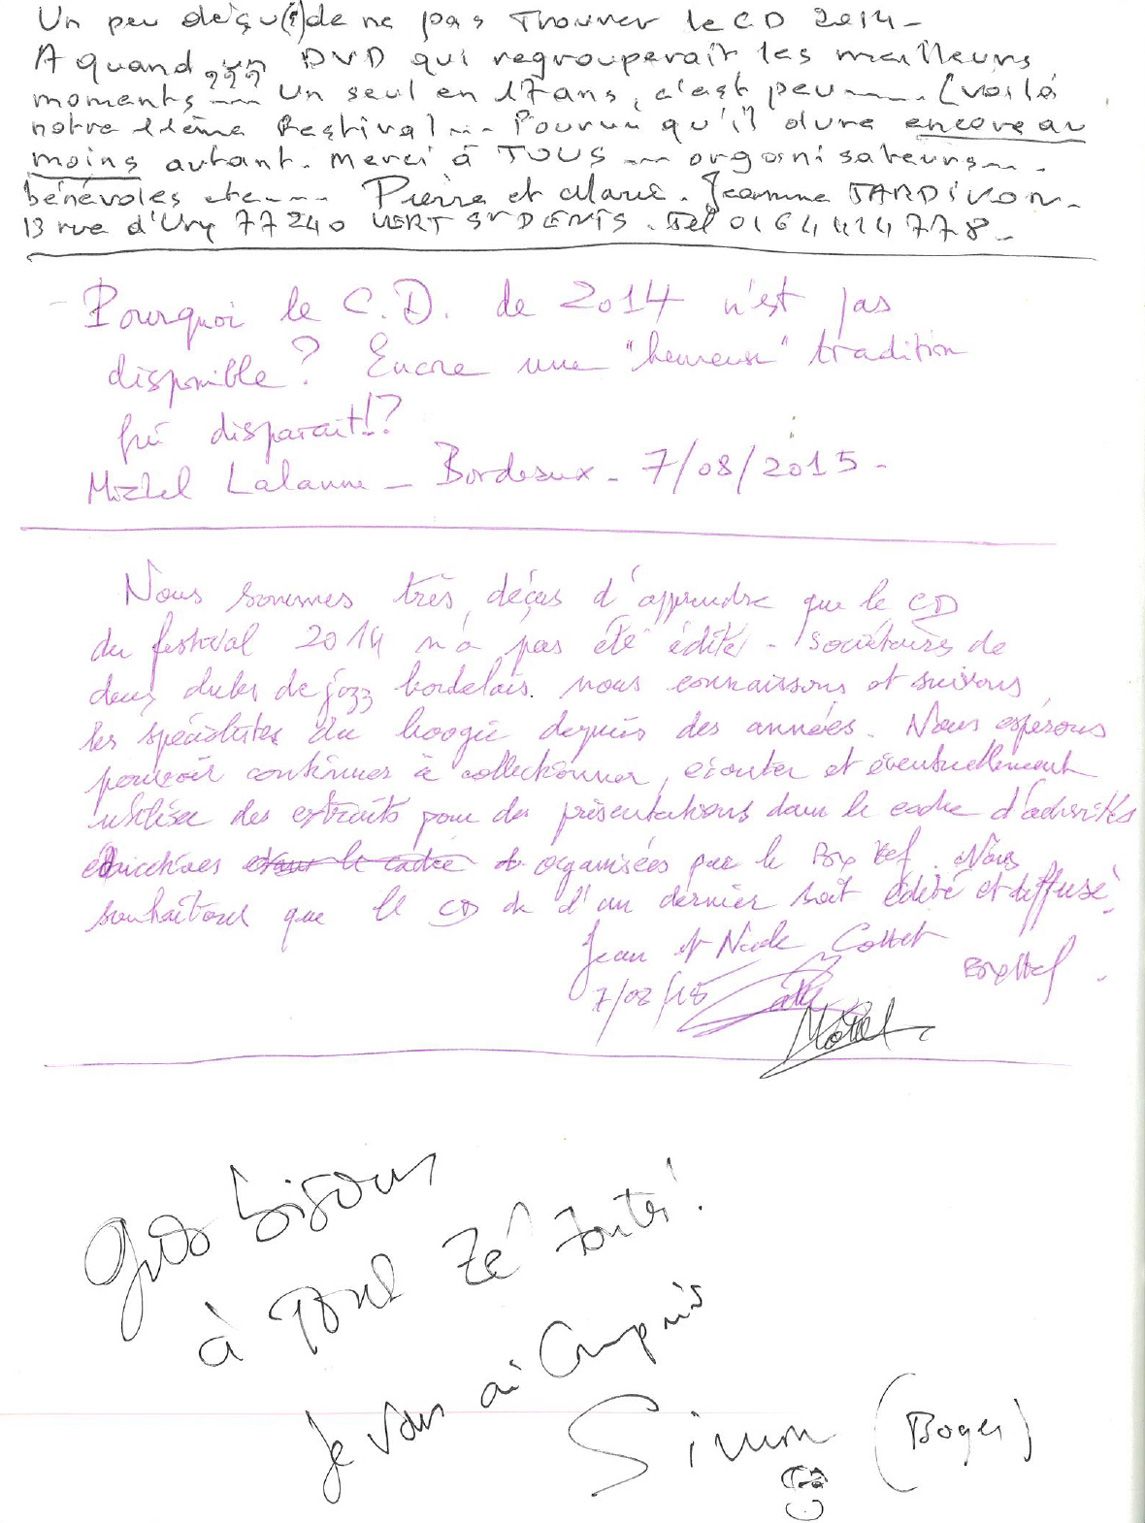 Un peu déçu(s) de ne pas Trouver le CD 2014 -
A quand un DVD qui regrouperait les meilleurs
moments ??? Un seul en 17 ans, c'est peu..... (voilà
notre 11ème Festival ... Pourvu qu'il dure encore au
moins autant. Merci à TOUS ... organisateurs....
bénévoles etc.... Pierre et Marie. Jeanne TARDIVON.
13 rue d'Ury 77240 VERT St DENIS. Tel 0164414778 -
- Pourquoi le C.D. de 2014 n'est pas
disponible ? Encore une "heureuse" tradition
qui disparait !?
Michel Lalanne - Bordeaux - 7/08/2015 -
Nous sommes très déçus d'apprendre que le CD
du festival 2014 n'a pas été édité - Sociétaires de
deux clubs de jazz bordelais. nous connaissons et suivons
les spécialistes du boogie depuis des années. Nous espérons
pouvoir continuer à collectionner, écouter et éventuellement
utiliser des extraits pour des présentations dans le cadre d'activités
dans le cadre organisées par le . Nous
souhaitons que le CD de l'an dernier soit édité et diffusé.
Jean et Nicole Cottet
7/08/15
Gros bisous
à Tous Zé Toutes !
Je vous ai Compris
Simon (Boyer)